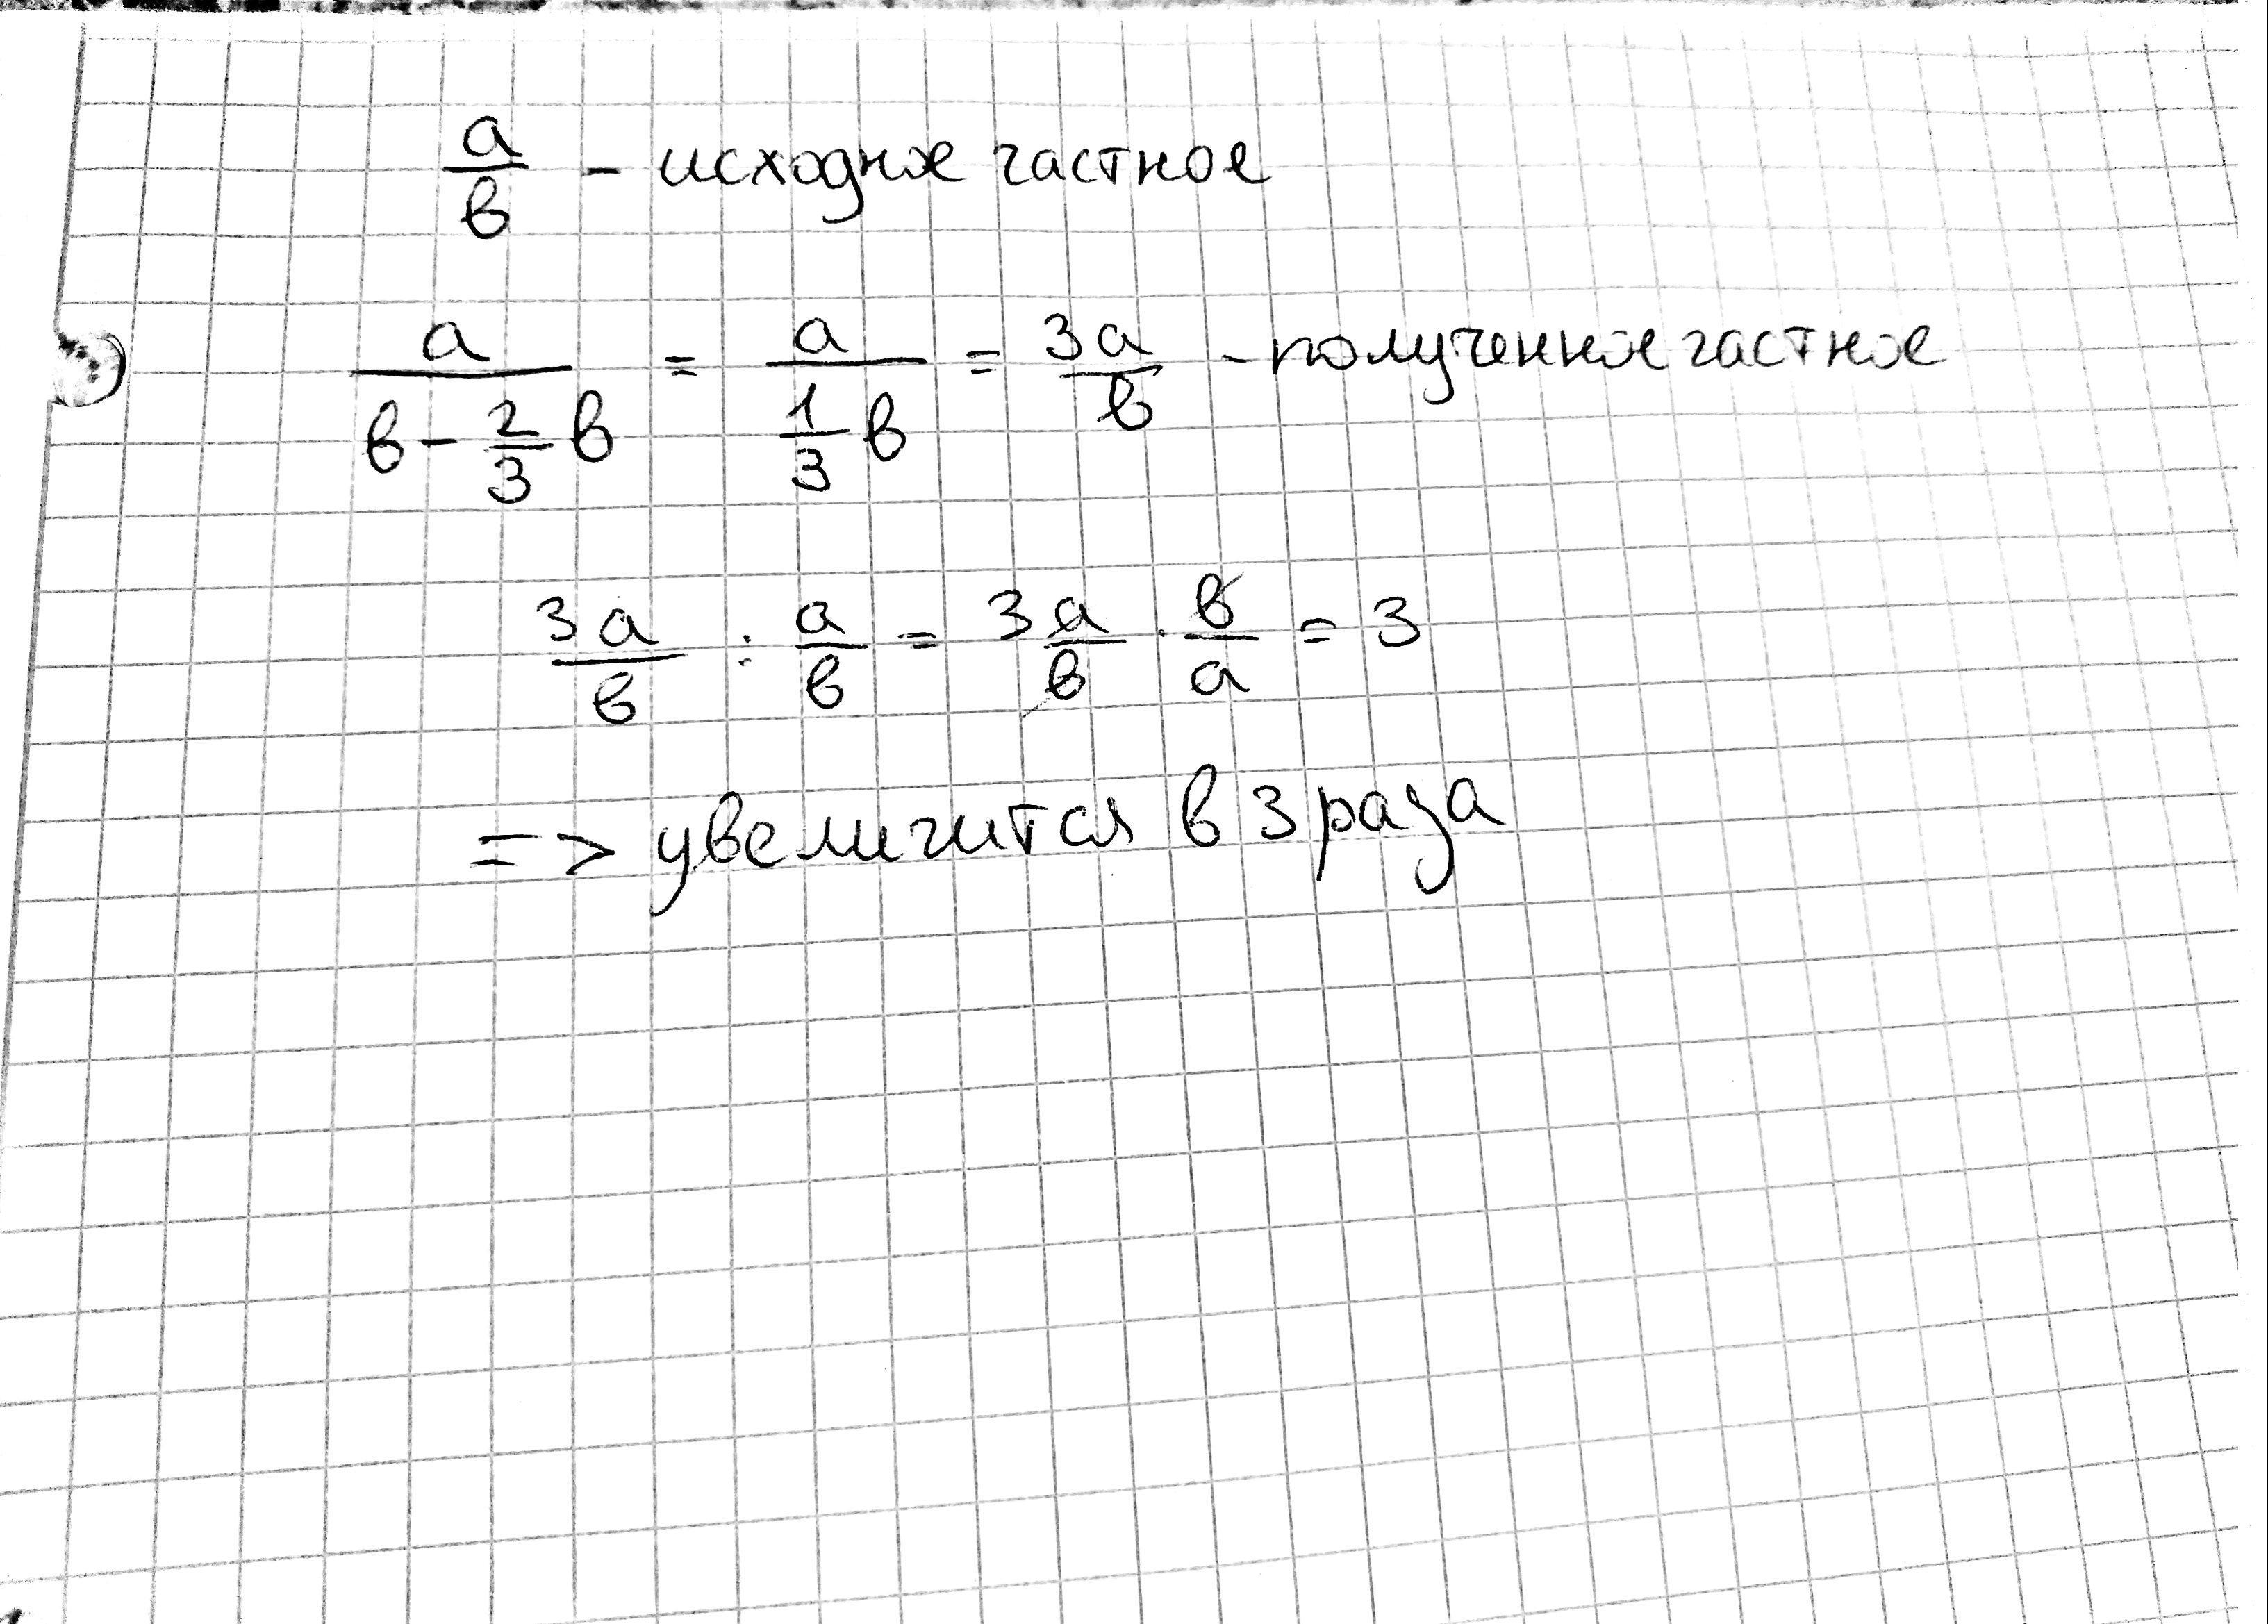 a/в - исходное частное
a/(в - 2/3 в) = a/(1/3 в) = 3a/в - полученное частное
3a/в : a/в = 3a/в · в/a = 3
=> увеличится в 3 раза